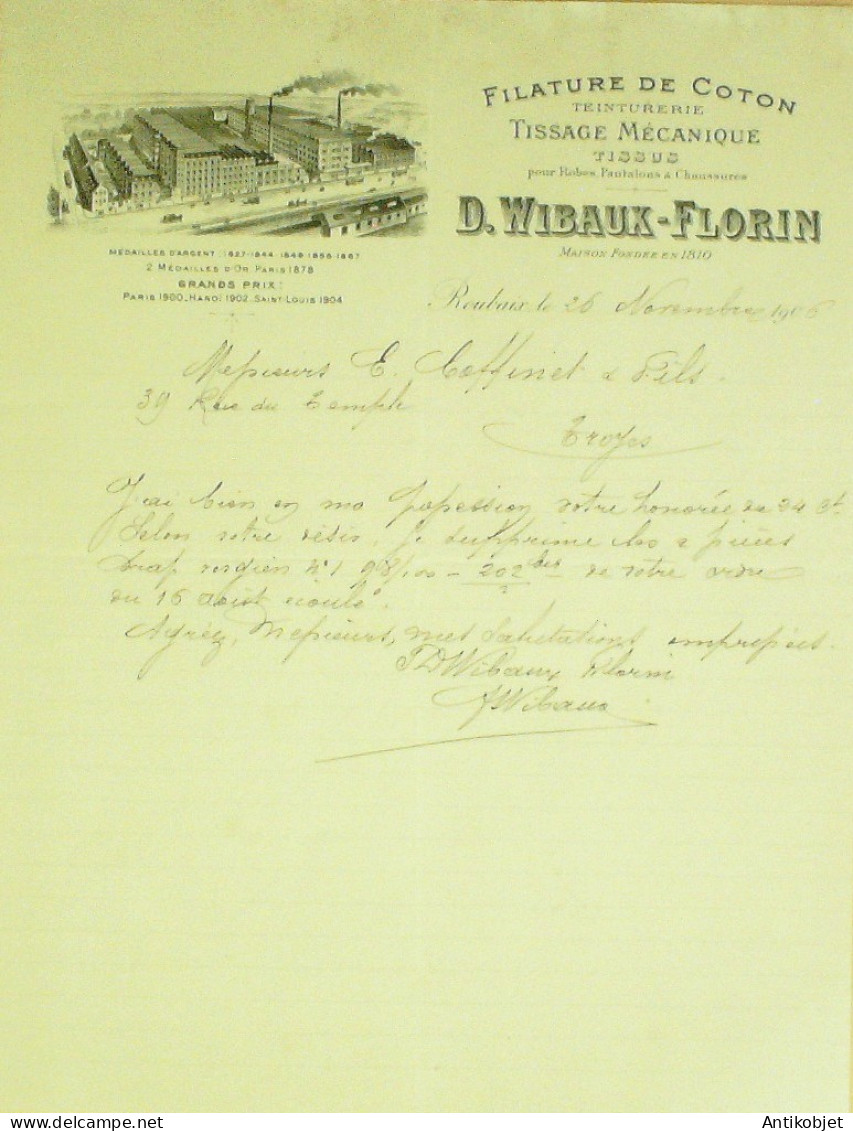 FILATURE DE COTON
TEINTURERIE
TISSAGE MÉCANIQUE
TISSUS
pour Robes, Pantalons & Chaussures
D. WIBAUX-FLORIN
MAISON FONDÉE EN 1810
MÉDAILLES D'ARGENT : 1827-1844-1849-1856-1867
2 MÉDAILLES D'OR PARIS 1878
GRANDS PRIX :
PARIS 1900_HANOI 1902_SAINT LOUIS 1904
Roubaix le 26 Novembre 1906
Messieurs E. Coffinet & Fils.
39 Rue du Temple
Troyes
J'ai bien en ma possession votre honorée du 24 ct
Selon votre désir, je supprime les 2 pièces
drap N°1 98/100 - 202 de votre ordre
du 16 août écoulé.
Agréez, Messieurs, mes Salutations empressées.
D Wibaux Florin
Wibaux
Antikobjet
www.delcampe.net